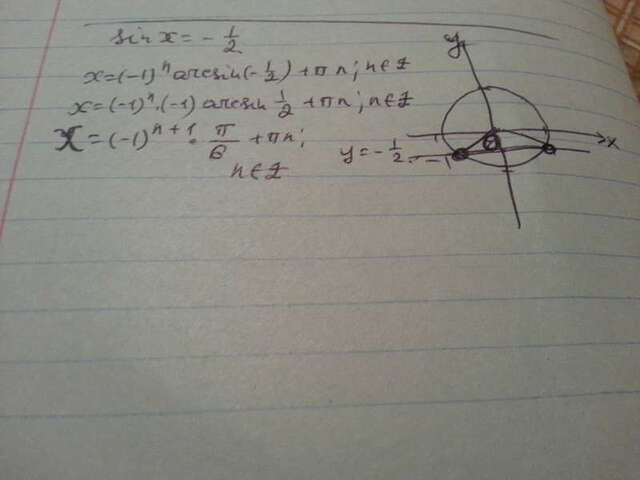 sin x = - 1/2
x = (-1)ⁿ arcsin(- 1/2) + πn; n∈Z
x = (-1)ⁿ·(-1) arcsin 1/2 + πn; n∈Z
x = (-1)ⁿ⁺¹ · π/6 + πn;
n∈Z
y
x
y = - 1/2